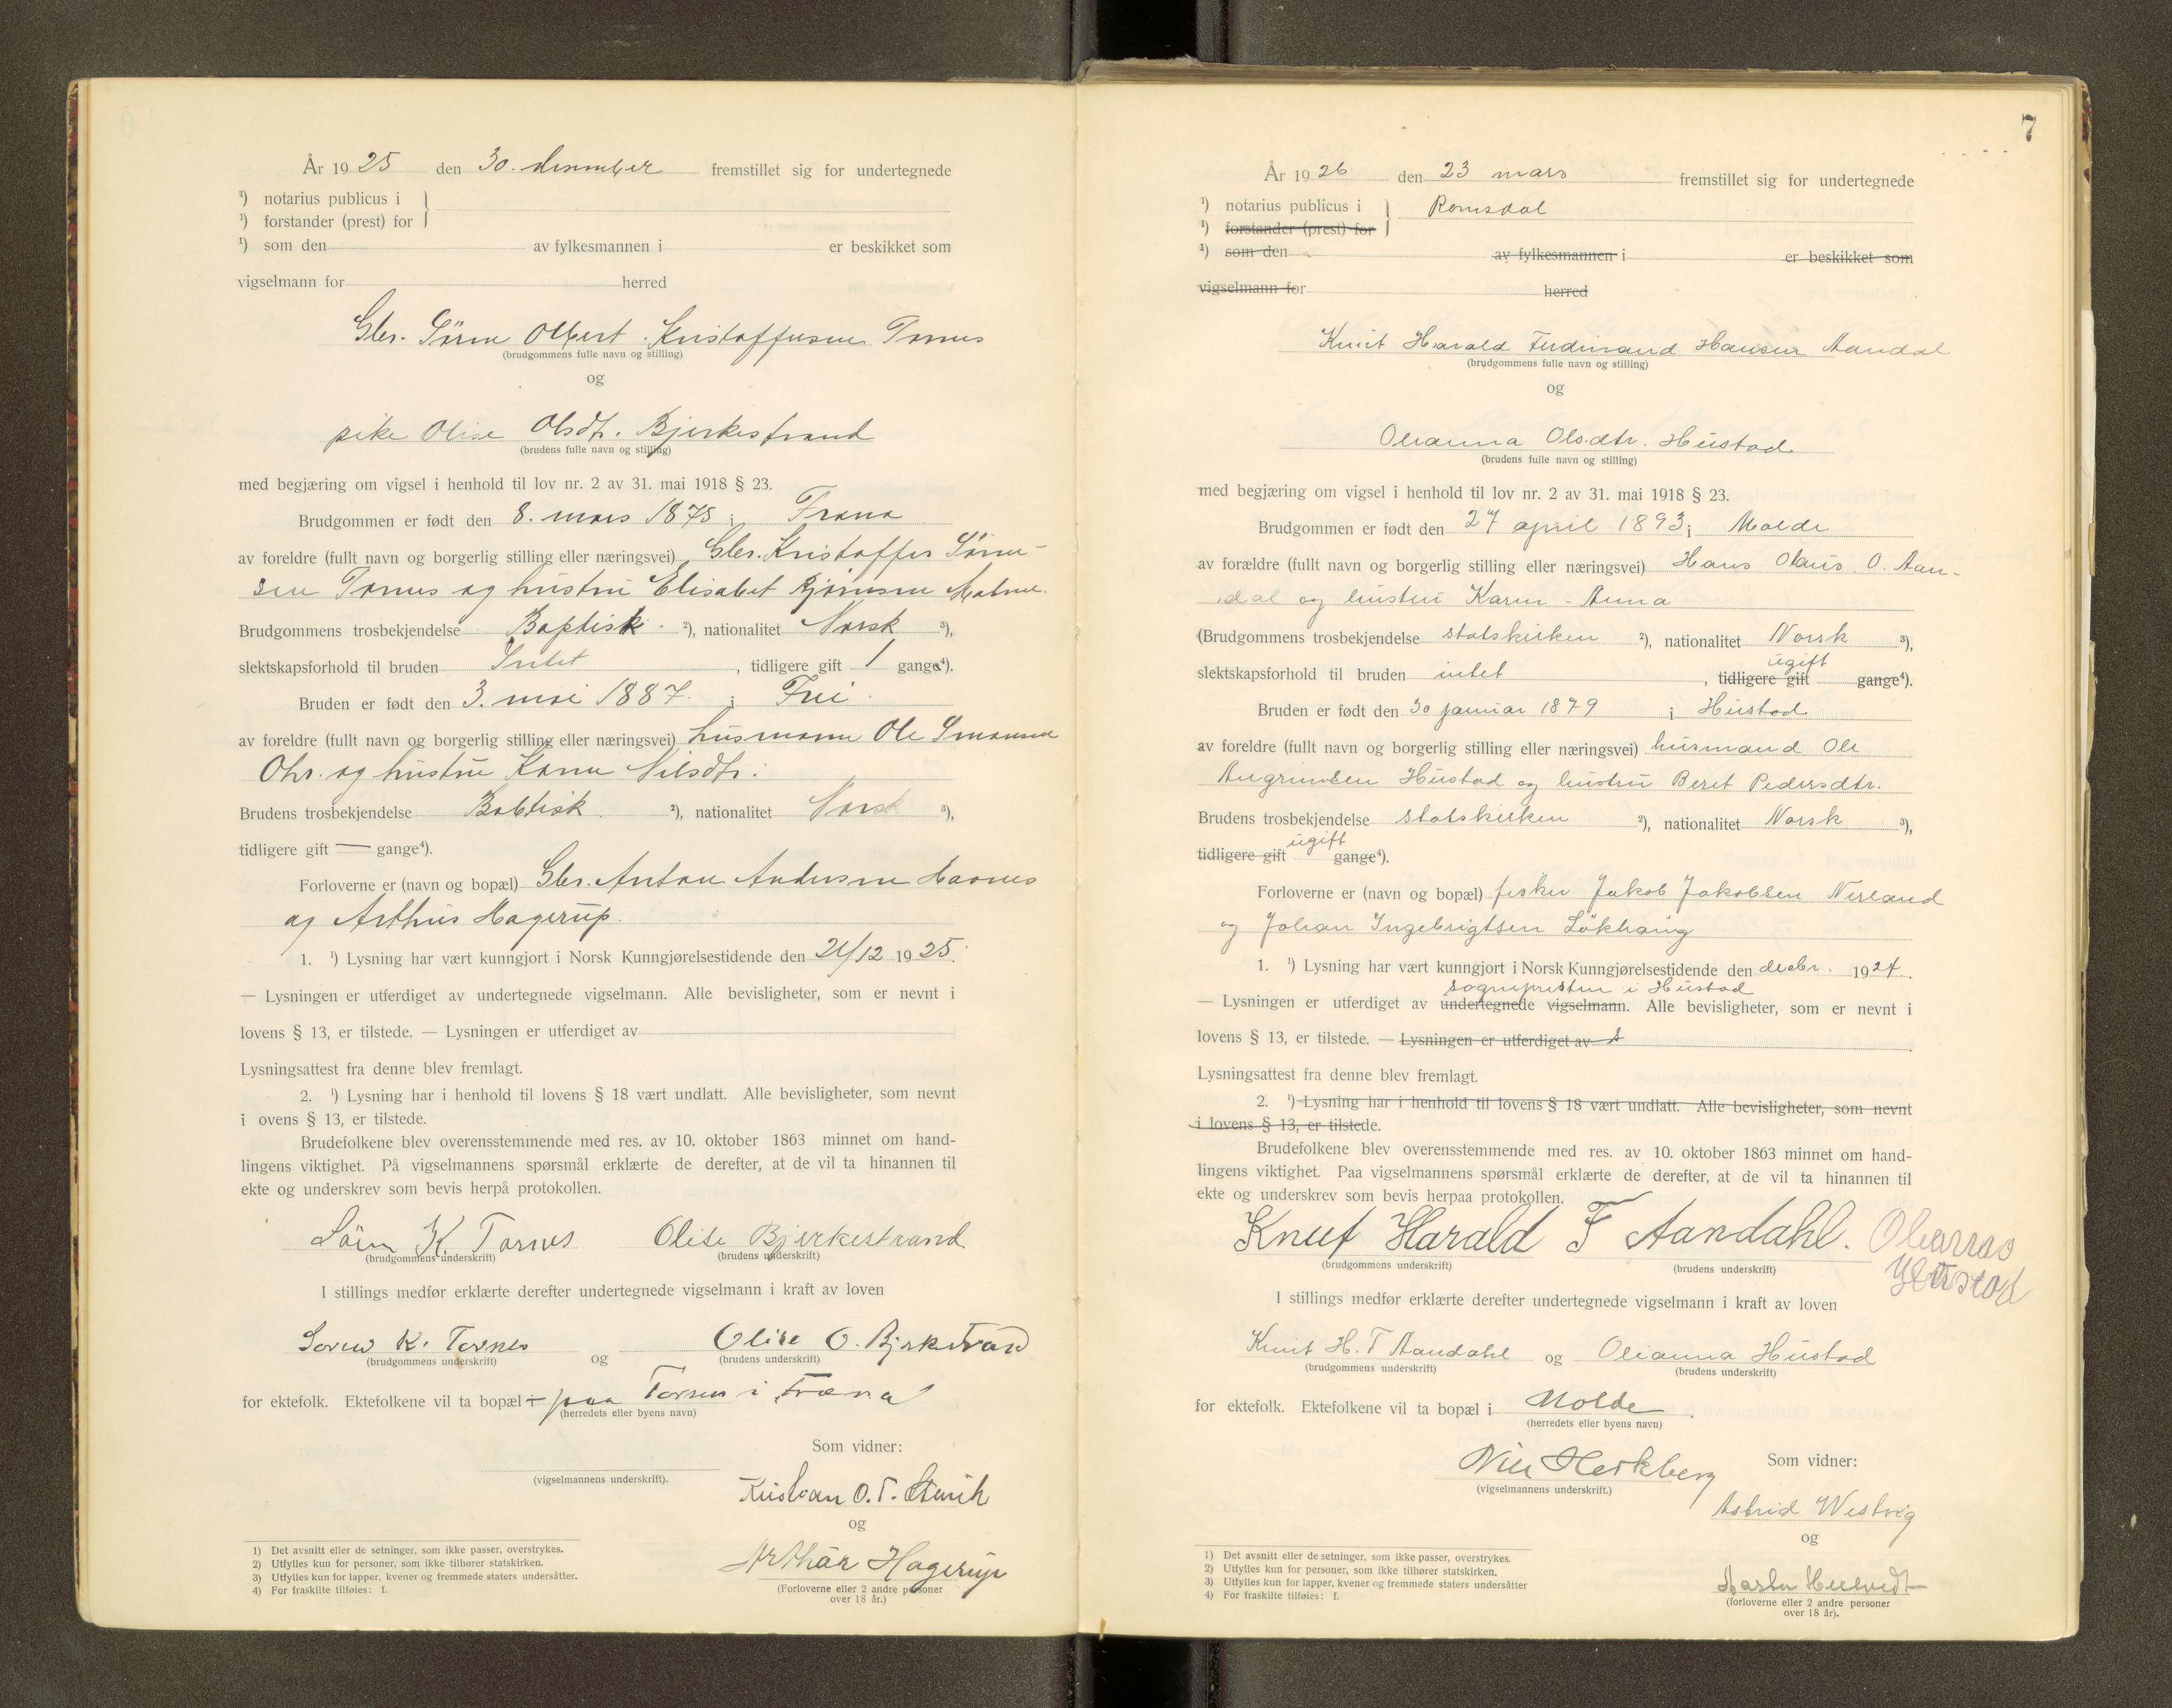 År 1925 den 30. desember fremstillet sig for undertegnede
¹) notarius publicus i
¹) forstander (prest) for
¹) som den av fylkesmannen i er beskikket som
vigselmann for herred
Gbr. Sören Olbert Kristoffersen Tornes
(brudgommens fulle navn og stilling)
og
pike Olise Olsdtr. Bjerkestrand
(brudens fulle navn og stilling)
med begjæring om vigsel i henhold til lov nr. 2 av 31. mai 1918 § 23.
Brudgommen er født den 8. mars 1875 i Fræna
av foreldre (fullt navn og borgerlig stilling eller næringsvei) Gbr. Kristoffer Sören-
sen Tornes og hustru Elisabet Bjørnsen Malme.
Brudgommens trosbekjendelse Baptisk ²), nationalitet Norsk ³),
slektskapsforhold til bruden Intet, tidligere gift 1 gange⁴).
Bruden er født den 3. mai 1887 i Frei
av foreldre (fullt navn og borgerlig stilling eller næringsvei) husmann Ole
og hustru Nilsdtr.
Brudens trosbekjendelse Babtisk ²), nationalitet Norsk ³),
tidligere gift — gange⁴).
Forloverne er (navn og bopæl) Gbr. Anton Andersen Havnes
og Arthur Hagerup.
1. ¹) Lysning har vært kunngjort i Norsk Kunngjørelsestidende den 21/12 1925.
— Lysningen er utferdiget av undertegnede vigselmann. Alle bevisligheter, som er nevnt i
lovens § 13, er tilstede. — Lysningen er utferdiget av
Lysningsattest fra denne blev fremlagt.
2. ¹) Lysning har i henhold til lovens § 18 vært undlatt. Alle bevisligheter, som nevnt
i ovens § 13, er tilstede.
Brudefolkene blev overensstemmende med res. av 10. oktober 1863 minnet om hand-
lingens viktighet. På vigselmannens spørsmål erklærte de derefter, at de vil ta hinannen til
ekte og underskrev som bevis herpå protokollen.
Sören K. Tornes Olise Bjerkestrand
(brudgommens underskrift) (brudens underskrift)
I stillings medfør erklærte derefter undertegnede vigselmann i kraft av loven
Soren K. Tornes og Olise O. Bjerkestrand
(brudgommens underskrift) (brudens underskrift)
for ektefolk. Ektefolkene vil ta bopæl i paa Tornes i Fræna
(herredets eller byens navn)
Som vidner:
(vigselmannens underskrift).
Kristian O. T.
og
Arthur Hagerup
(Forloverne eller 2 andre personer
over 18 år.)
1) Det avsnitt eller de setninger, som ikke passer, overstrykes.
2) Utfylles kun for personer, som ikke tilhører statskirken.
3) Utfylles kun for lapper, kvener og fremmede staters undersåtter.
4) For fraskilte tilføies: f.
7
År 1926 den 23 mars fremstillet sig for undertegnede
¹) notarius publicus i Romsdal
¹) forstander (prest) for
¹) som den av fylkesmannen i er beskikket som
vigselmann for herred
Knut Harald Ferdinand Hansen Aandal
(brudgommens fulle navn og stilling)
og
Olianna Olsdtr. Hustad
(brudens fulle navn og stilling)
med begjæring om vigsel i henhold til lov nr. 2 av 31. mai 1918 § 23.
Brudgommen er født den 27 april 1893 i Molde
av forældre (fullt navn og borgerlig stilling eller næringsvei) Hans Olaus O. Aan-
dal og hustru Karen-Anna
(Brudgommens trosbekjendelse statskirken ²), nationalitet Norsk ³),
ugift
slektskapsforhold til bruden intet, tidligere gift gange⁴).
Bruden er født den 30 januar 1879 i Hustad
av foreldre (fullt navn og borgerlig stilling eller næringsvei) husmand Ole
Angrimsen Hustad og hustru Beret Pedersdtr.
Brudens trosbekjendelse statskirken ²), nationalitet Norsk ³),
ugift
tidligere gift gange⁴).
Forloverne er (navn og bopæl) fisker Jakob Jakobsen Nerland
og Johan Ingebrigtsen Lökhaug
1. ¹) Lysning har vært kunngjort i Norsk Kunngjørelsestidende den decbr. 1924.
sogneprsten i Hustad
— Lysningen er utferdiget av undertegnede vigselmann. Alle bevisligheter, som er nevnt i
lovens § 13, er tilstede. — Lysningen er utferdiget av
Lysningsattest fra denne blev fremlagt.
2. ¹) Lysning har i henhold til lovens § 18 vært undlatt. Alle bevisligheter, som nevnt
i lovens § 13, er tilstede.
Brudefolkene blev overensstemmende med res. av 10. oktober 1863 minnet om hand-
lingens viktighet. Paa vigselmannens spørsmål erklærte de derefter, at de vil ta hinannen til
ekte og underskrev som bevis herpaa protokollen.
Knut Harald F Aandahl. Olianna
Hustad
(brudgommens underskrift) (brudens underskrift)
I stillings medfør erklærte derefter undertegnede vigselmann i kraft av loven
Knut H. F Aandahl og Olianna Hustad
(brudgommens underskrift) (brudens underskrift)
for ektefolk. Ektefolkene vil ta bopæl i Molde
(herredets eller byens navn)
Som vidner:
(vigselmannens underskrift.)
Astrid Westvig
og
(forloverne eller 2 andre personer
over 18 år).
1) Det avsnitt eller de setninger, som ikke passer, overstrykes.
2) Utfylles kun for personer, som ikke tilhører statskirken.
3) Utfylles kun for lapper, kvener og fremmede staters undersåtter
4) For fraskilte tilføies: f.